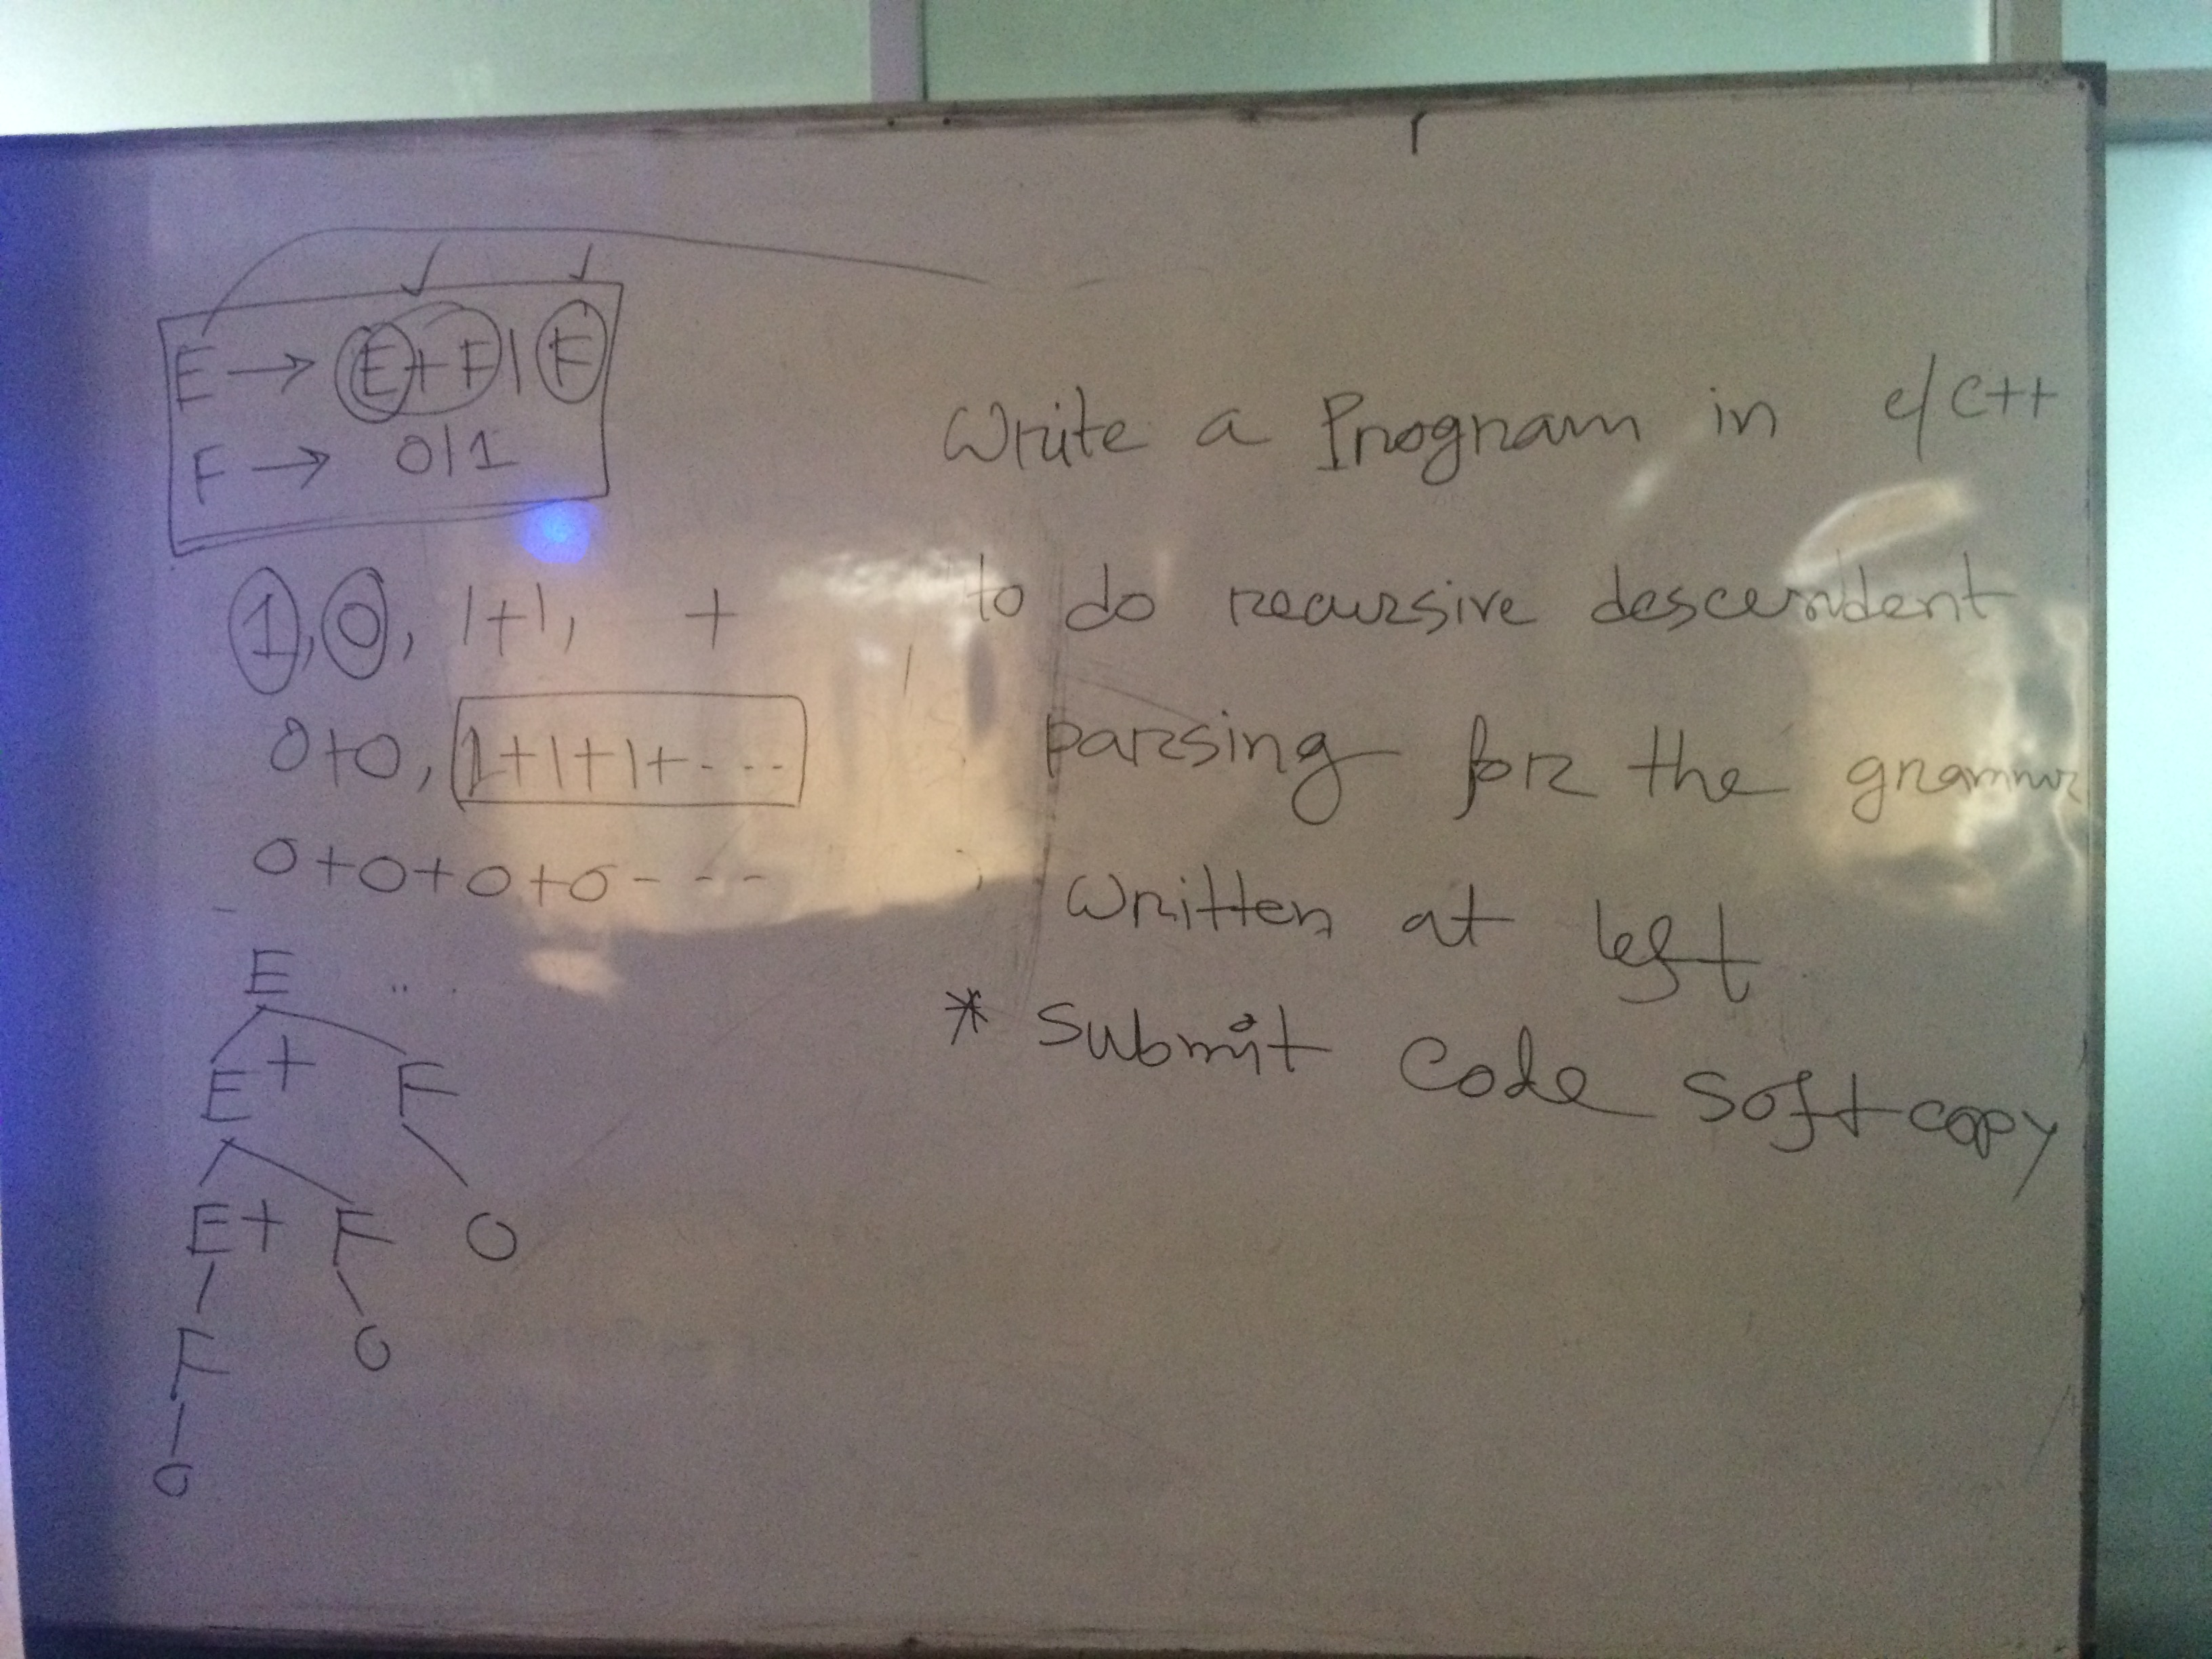 E → E+F | F
F → 0|1
1, 0, 1+1, +
0+0, 1+1+1+----
0+0+0+0----
E
E + F
E + F 0
F 0
0
Write a Program in c/C++
to do recursive descendent
parsing for the grammar
written at left
* Submit Code Softcopy